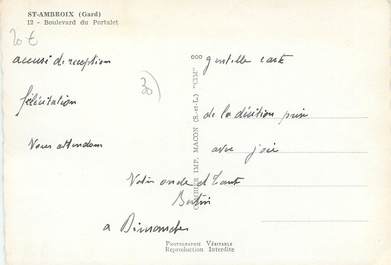 ST-AMBROIX (Gard)
12 - Boulevard du Portalet
20 €
accusé de reception gentille carte
30
félicitation de la décition prise
Vous attendons avec joie
Votre oncle et Tante
à Dimanche
COMBIER IMP. MACON (S.-et-L.) "CIM"
PHOTOGRAPHIE VÉRITABLE
Reproduction Interdite